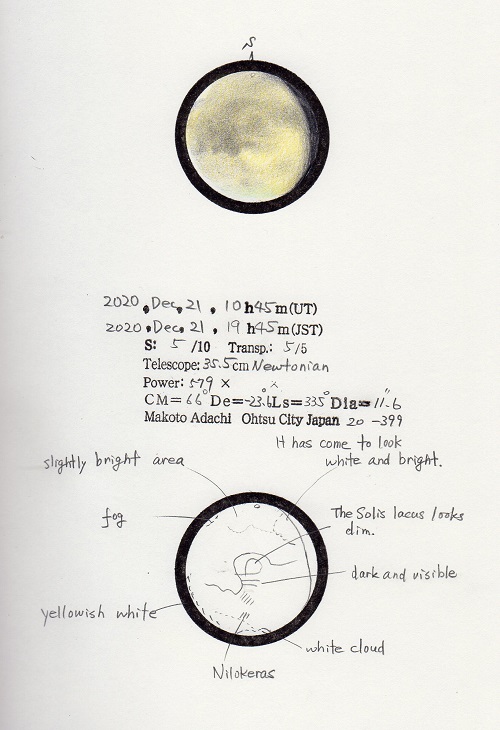 S
2020, Dec, 21, 10h45m(UT)
2020, Dec, 21, 19h45m(JST)
S: 5/10 Transp.: 5/5
Telescope: 35.5cm Newtonian
Power: 579 × ×
CM=66° De=-23.6° Ls=335° Dia=11.6"
Makoto Adachi Ohtsu City Japan 20-399
It has come to look
slightly bright area white and bright.
fog The Solis lacus looks
dim.
dark and visible
yellowish white
white cloud
Nilokeras